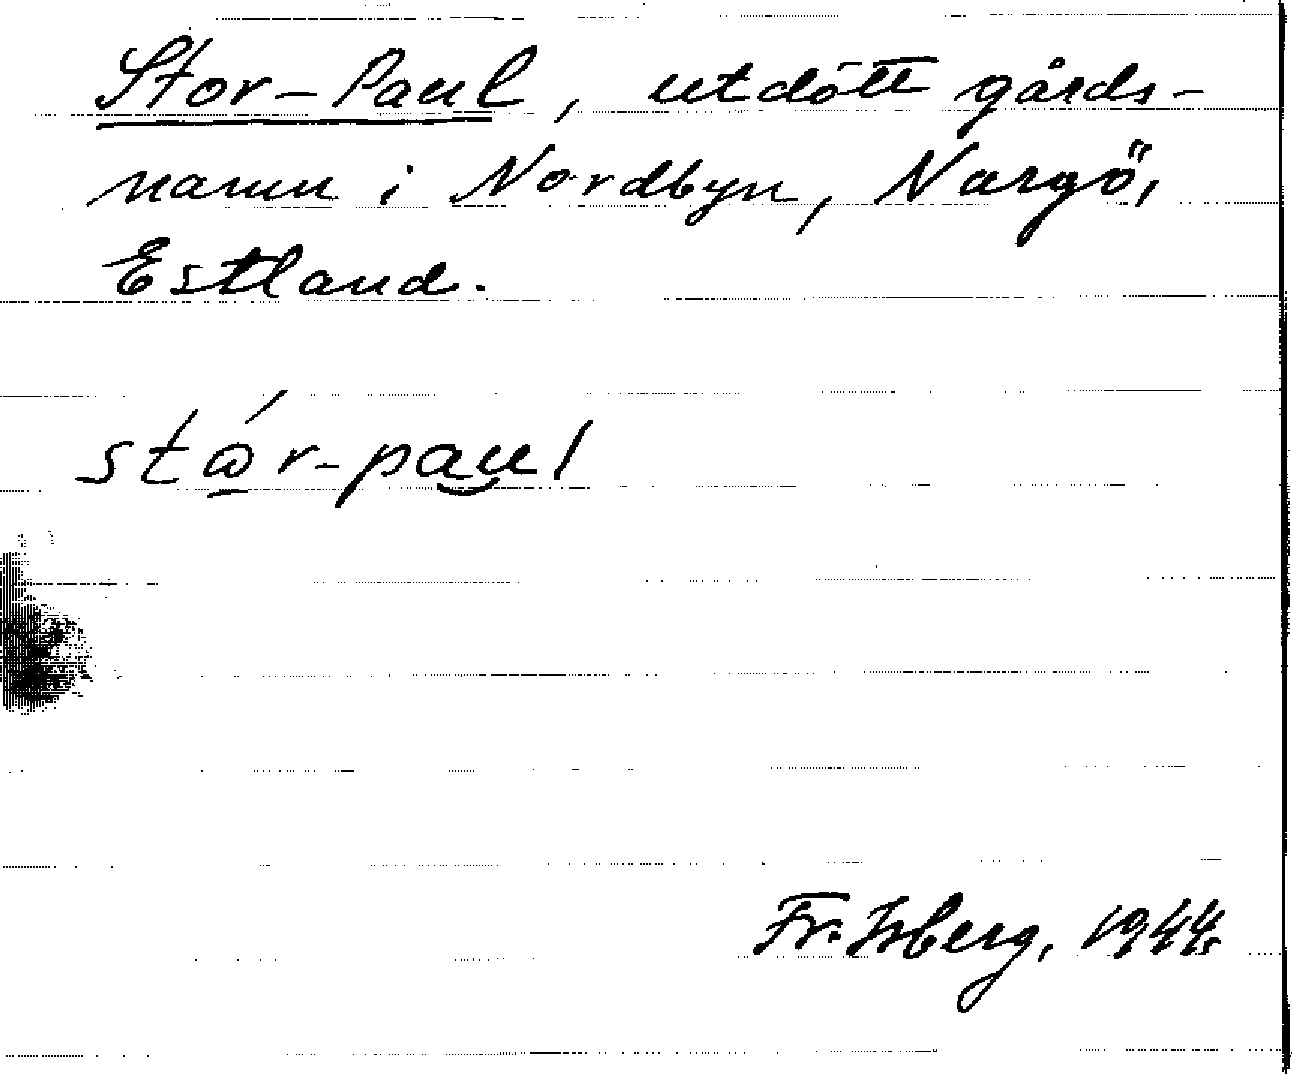 Stor-Paul, utdött gårds-
namn i Nordbyn, Nargö,
Estland.
stώ̲r-pau̮l
Fr. Isberg, 1944.